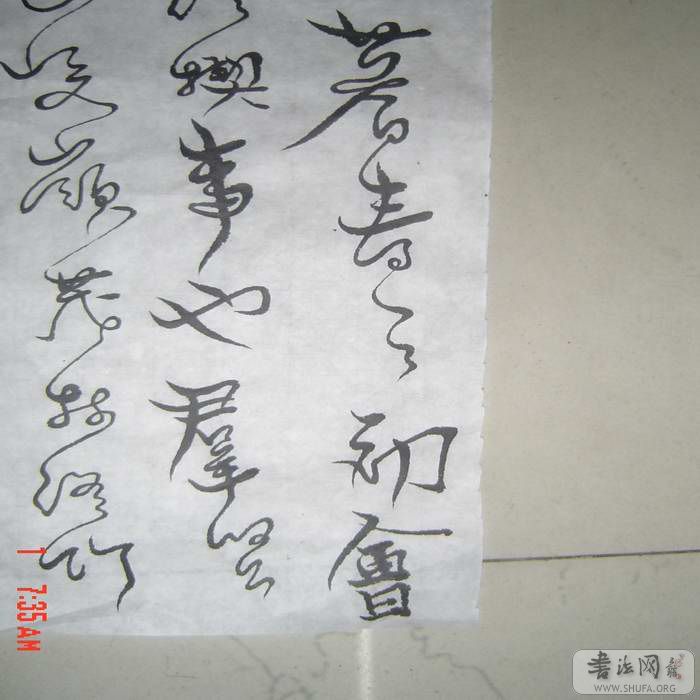 暮春之初會
禊事也羣賢
峻嶺茂林脩竹
7:35 AM
書法网
WWW.SHUFA.ORG